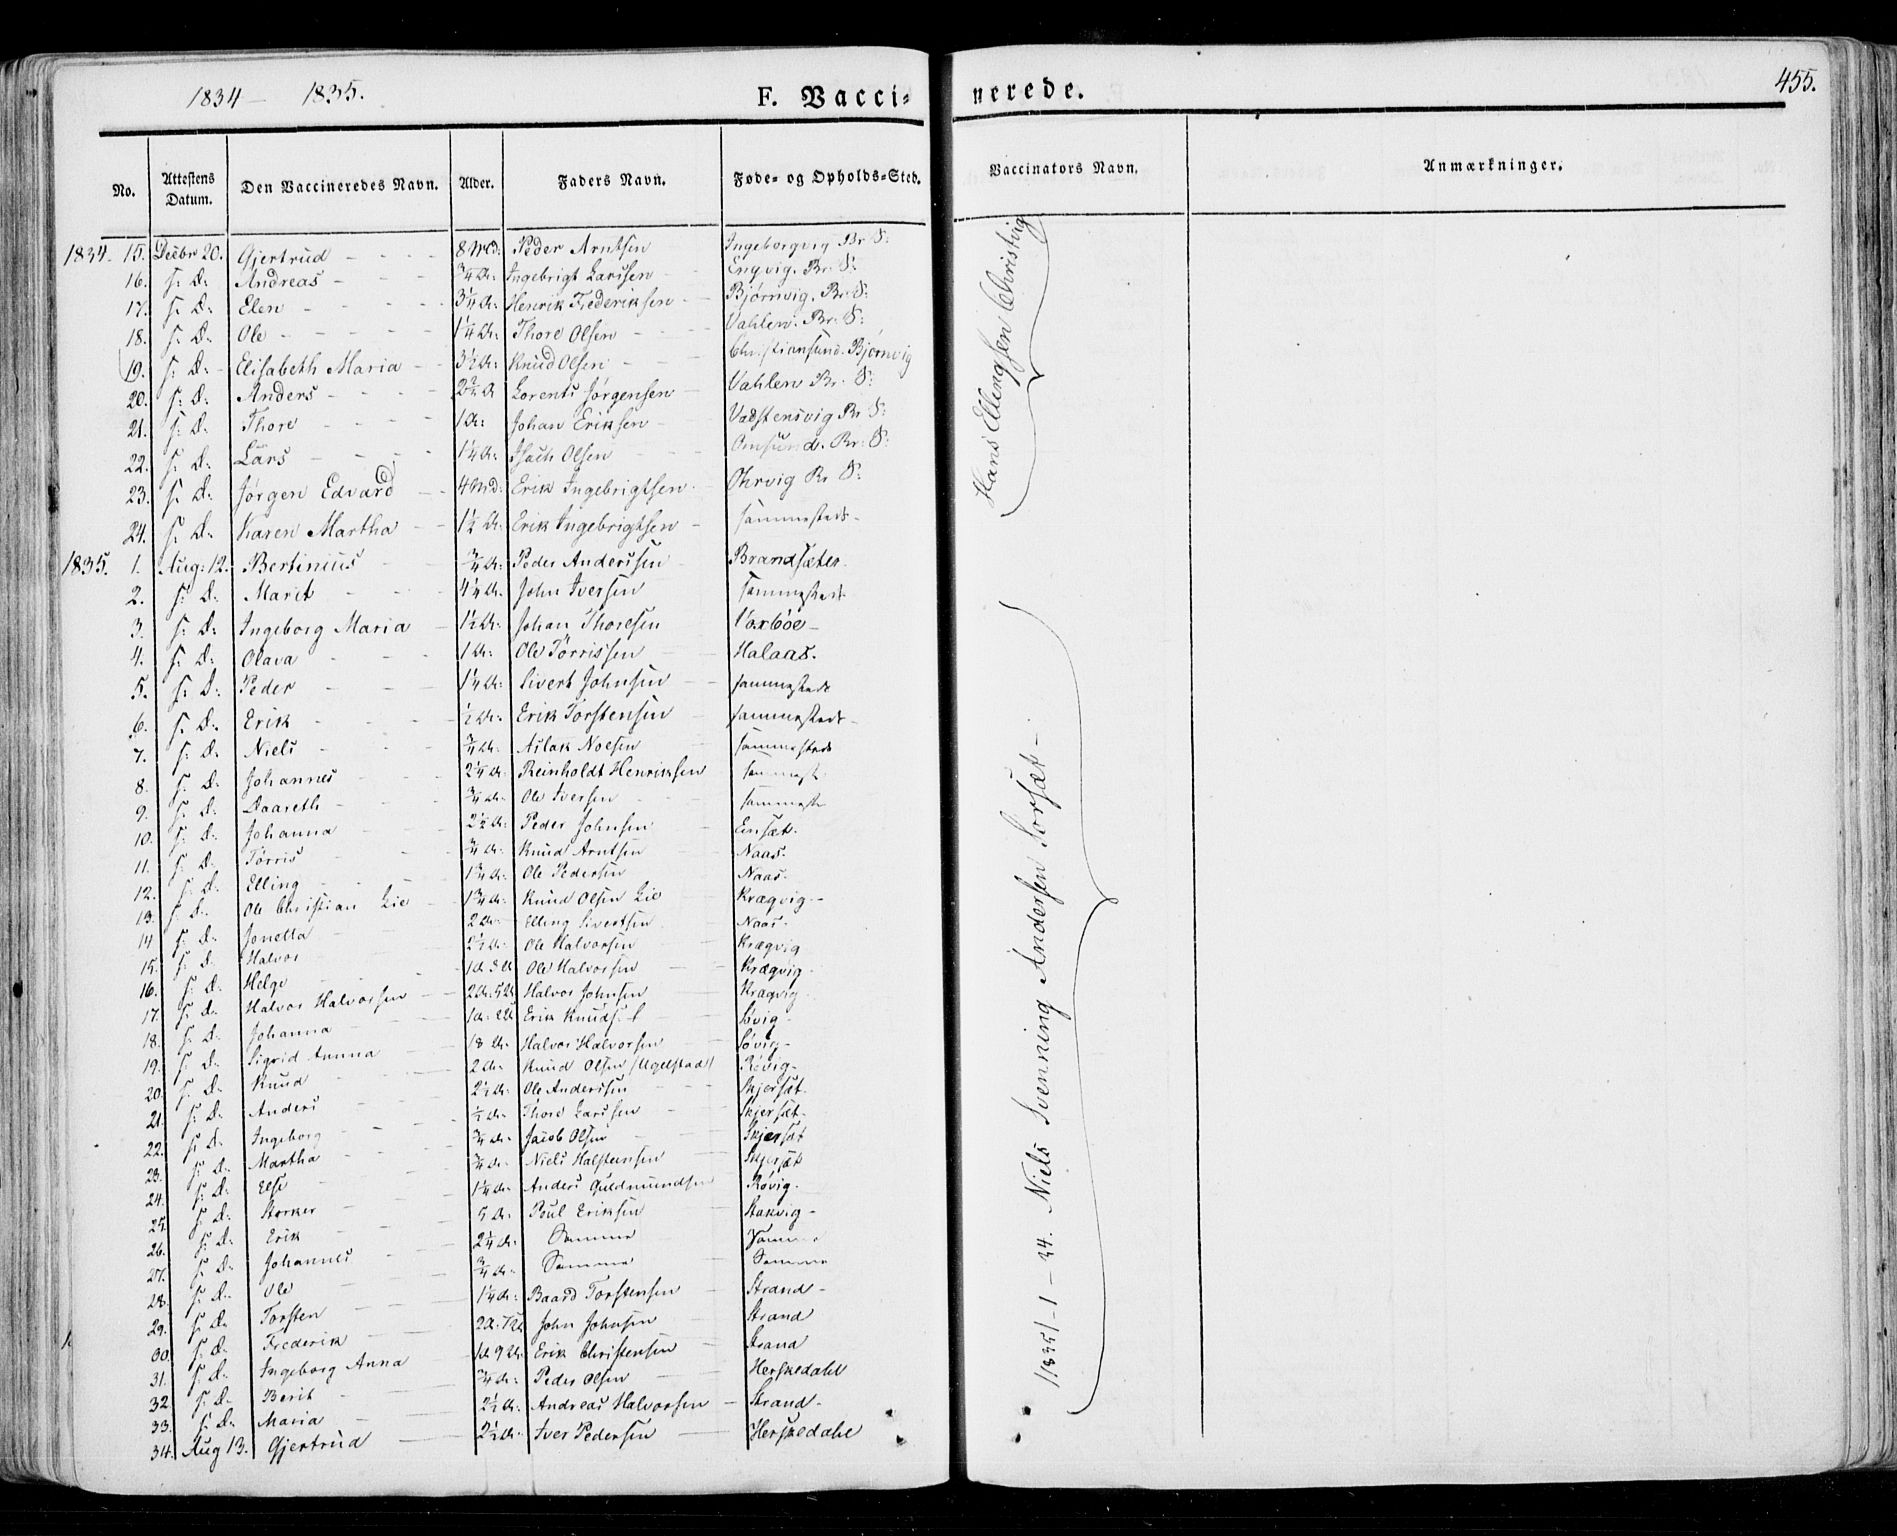 1834 - 1835.
F. Vacci- nerede.
455.
No. Attestens Datum. Den Vaccineredes Navn. Alder. Faders Navn. Føde- og Opholds-Sted. Vaccinators Navn. Anmærkninger.
1834. 15. Decbr 20. Gjertrud 8 Md: Peder Arntsen Ingeborgvig Br: S:
16. s: D: Andreas 3/4 Ar: Ingebrigt Larssen Engvig. Br: S:
17. s: D: Elen 3 1/4 Ar: Henrik Frederiksen Bjørnvig. Br: S:
18. s: D: Ole 1 1/4 Ar: Thore Olsen Vahlen. Br: S:
19. s: D: Elisabeth Maria 3 1/2 Ar: Knud Olsen Christiansund. Bjørnvig
20. s: D: Anders Lorents Jørgensen Vahlen Br: S:
21. s: D: Thore 1 Ar: Johan Eriksen Vadstensvig Br: S:
22. s: D: Lars 1 1/4 Ar: Isach Olsen Omsund. Br: S:
23. s: D: Jørgen Edvard 4 Md: Erik Ingebrigtsen Ohrvig Br S:
24. s: D: Karen Martha 1 1/2 Ar: Erik Ingebrigtsen sammesteds
Hans Ellingsen Christvig
1835. 1. Aug: 12. Bertinius 3/4 Ar: Peder Anderssen Brandsæter
2. s: D: Marit 4 1/4 Ar: John Iversen sammesteds
3. s: D: Ingeborg Maria 1 1/2 Ar: Johan Thoresen Voxbøe
4. s: D: Olava 1 Ar: Ole Tørrissen Halaas.
5. s: D: Peder 1 1/4 Ar: Sivert Johnsen sammesteds
6. s: D: Erik 1/2 Ar: Erik Torstensen sammesteds
7. s: D: Niels 3/4 Ar: Aslak Noesen sammesteds
8. s: D: Johannes 2 1/4 Ar: Reinholdt Henriksen sammest
9. s: D: Daareth 3/4 Ar: Ole Iversen sammeste
10. s: D: Johanna 2 1/2 Ar: Peder Johnsen Ensæt.
11. s: D: Tørris 3/4 Ar: Knud Arntsen Naas.
12. s: D: Elling 1 3/4 Ar: Ole Pedersen Naas.
13. s: D: Ole Christian Lie 1 3/4 Ar: Knud Olsen Lie Krægvig
14 s: D: Jonetta 2 Ar: Elling Sivertsen Naas
15. s: D. Halvor 2 1/2 Ar: Ole Halvorsen Krægvig
16. s: D: Helge Ole Halvorsen Krægvig
17. s: D: Halvor Halvorsen Halvor Johnsen Krægvig
18. s: D: Johanna Erik Søvig
19. s: D: Sigrid Anna 18 Ar: Halvor Halvorsen Søvig
20. s: D: Knud 2 Ar: Knud Olsen (Ugelstad) Røvig
21. s: D: Anders 2 1/2 Ar: Ole Anderssen Skjersæt.
22. s: D: Ingeborg 1/2 Ar: Thore Larssen Skjersæt.
23. s: D: Martha 3/4 Ar: Jacob Olsen Skjersæt
24. s: D: Else 3/4 Ar: Niels Halsteinsen Skjersæt
25. s: D: Storker 1 1/4 Ar: Anders Guldmundsen Røvig.
26. s: D: Erik 5 Ar: Poul Eriksen Stokvig
27. s: D: Johannes 2 1/4 Ar: Samme Samme
28. s: D: Ole 3/4 Ar: Samme Samme
29. s: D: Torsten 1 1/4 Ar: Baard Torstensen Strand
30. s: D: Frederik John Johnsen Strand
31. s: D: Ingeborg Anna Erik Christensen Strand
32. s: D: Berit 3/4 Ar: Peder Olsen Herskedahl
33. s: D: Maria 2 1/2 Ar: Andreas Halvorsen Strand
34. Aug 13. Gjertrud 2 1/2 Ar: Iver Pedersen Herskedahl
1835/-1-34. Niels Svenning Andersen Sorsæt